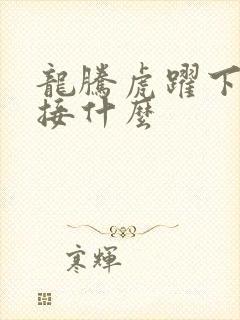 龍騰虎躍下
接什麼
寒輝